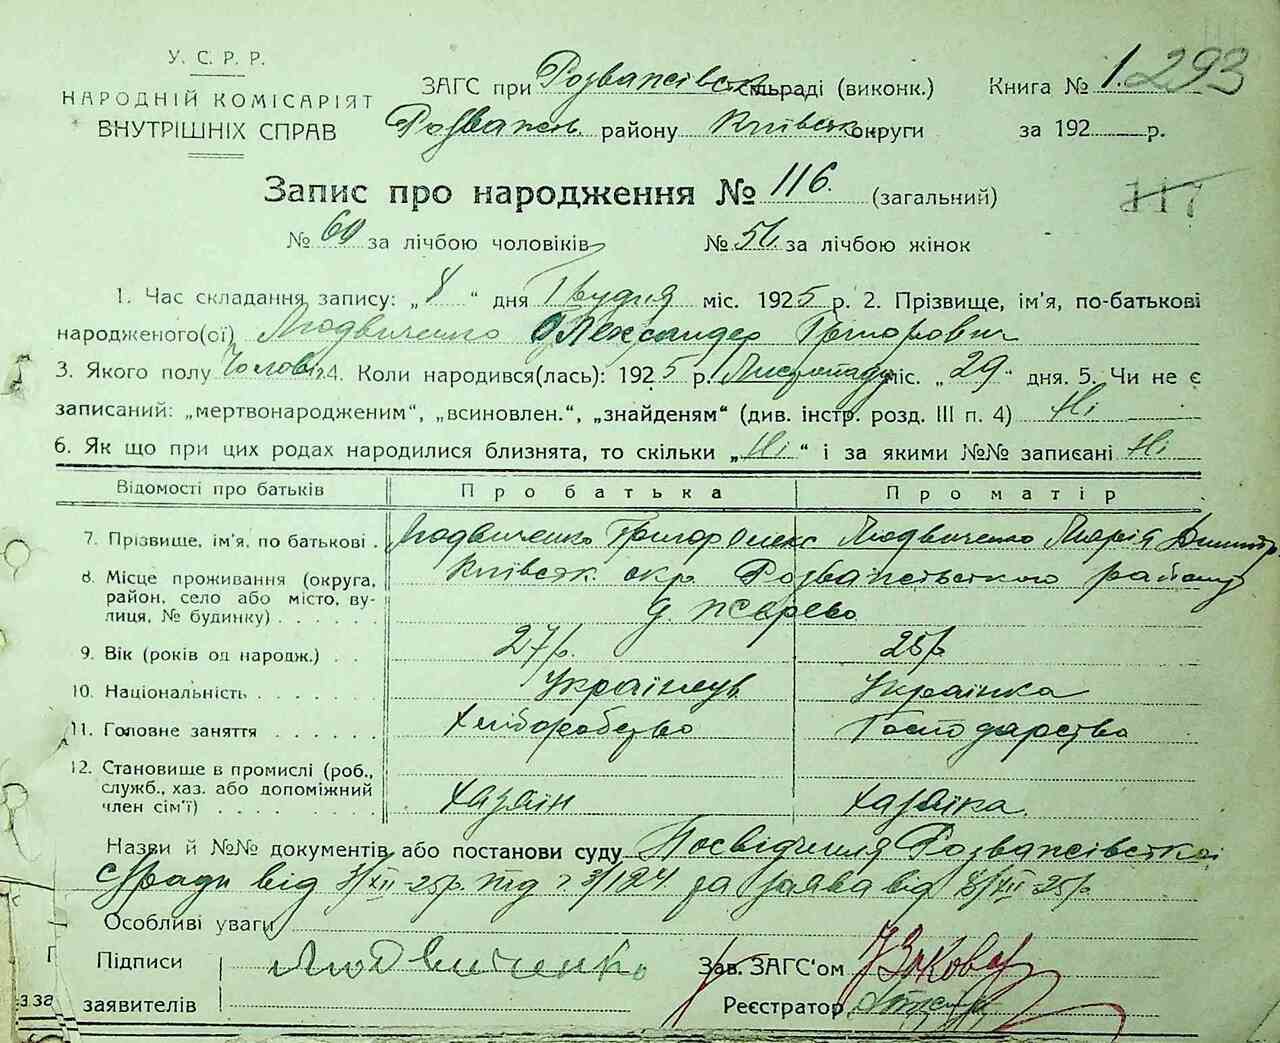 У. С. Р. Р.
НАРОДНІЙ КОМІСАРІЯТ
ВНУТРІШНІХ СПРАВ
ЗАГС при Розважівськ сільраді (виконк.) Книга № 1. 293
Розважів. району Київськ округи за 192 р.
Запис про народження № 116. (загальний) 117
№ 60 за лічбою чоловіків № 56 за лічбою жінок
1. Час складання запису: „8“ дня Грудня міс. 1925 р. 2. Прізвище, ім'я, по-батькові
народженого(ої) Людвиченко Олександер Григорович
3. Якого полу Чолов 4. Коли народився(лась): 1925 р. Листопаду міс. „29“ дня. 5. Чи не є
записаний: „мертвонародженим“, „всиновлен.“, „знайденям“ (див. інстр. розд. III п. 4) Ні
6. Як що при цих родах народилися близнята, то скільки „Ні“ і за якими №№ записані Ні
Відомості про батьків Про батька Про матір
7. Прізвище, ім'я, по батькові . Людвиченко Григор Олекс Людвиченко Марія Дмитр
8. Місце проживання (округа, район, село або місто, вулиця, № будинку) . . . . . . Київськ. окр. Розважівського району
д. Жерево
9. Вік (років од народж.) . . 27 р. 25 р.
10. Національність . . . . . . Українець Українка
11. Головне заняття . . . . . . Хліборобство Господарство
12. Становище в промислі (роб.,
служб., хаз. або допоміжний
член сім'ї) . . . . . . . . Хазяїн Хазяїка
Назви й №№ документів або постанови суду Посвідчення Розважівської
с/ради від 3/XII-25 р. під № 3/124 за заява від 8/XII-25 р.
Особливі уваги
Підписи Людвиченко Зав. ЗАГС'ом
заявителів Реєстратор